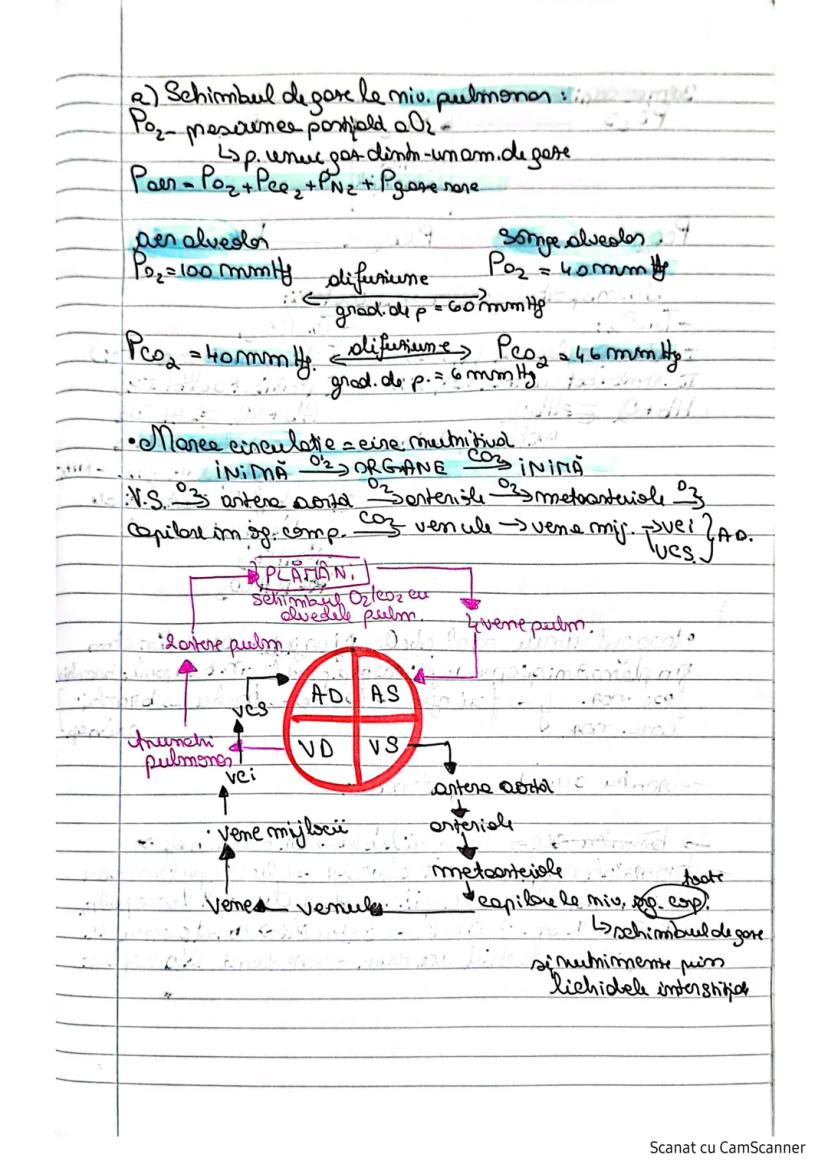 a) Schimbul de gaze la niv. pulmonar:
PO₂ - presiunea parțială a O₂ -
↳ p. unui gaz dintr-un am. de gaze
Paer = PO₂ + PCO₂ + PN₂ + Pgaze rare
aer alveolar
sânge alveolar.
PO₂ = 100 mmHg
difuziune
PO₂ = 40 mmHg
grad. de p = 60 mmHg
PCO₂ = 40 mmHg.
difuziune
PCO₂ = 46 mmHg
grad. de p. = 6 mmHg
• Marea circulație = circ. nutritivă
INIMĂ O₂→ ORGANE CO₂→ INIMĂ
V.S. O₂→ artera aortă O₂→ arteriole O₂→ metaarteriole O₂→
capilare în og. comp. CO₂→ venule → vene mij. → vci } A.D.
VCS
PLĂMÂNI
schimbul O₂/CO₂ cu
alveolele pulm.
2 artere pulm
4 vene pulm.
AD AS
VCS
trunchi
pulmonar
VD VS
vci
artera aortă
vene mijlocii
arteriole
metaarteriole
toate
vene
venule
capilare la niv. og. corp.
↳ schimbul de gaze
și nutrimente prin
lichidele interstițiale
Scanat cu CamScanner